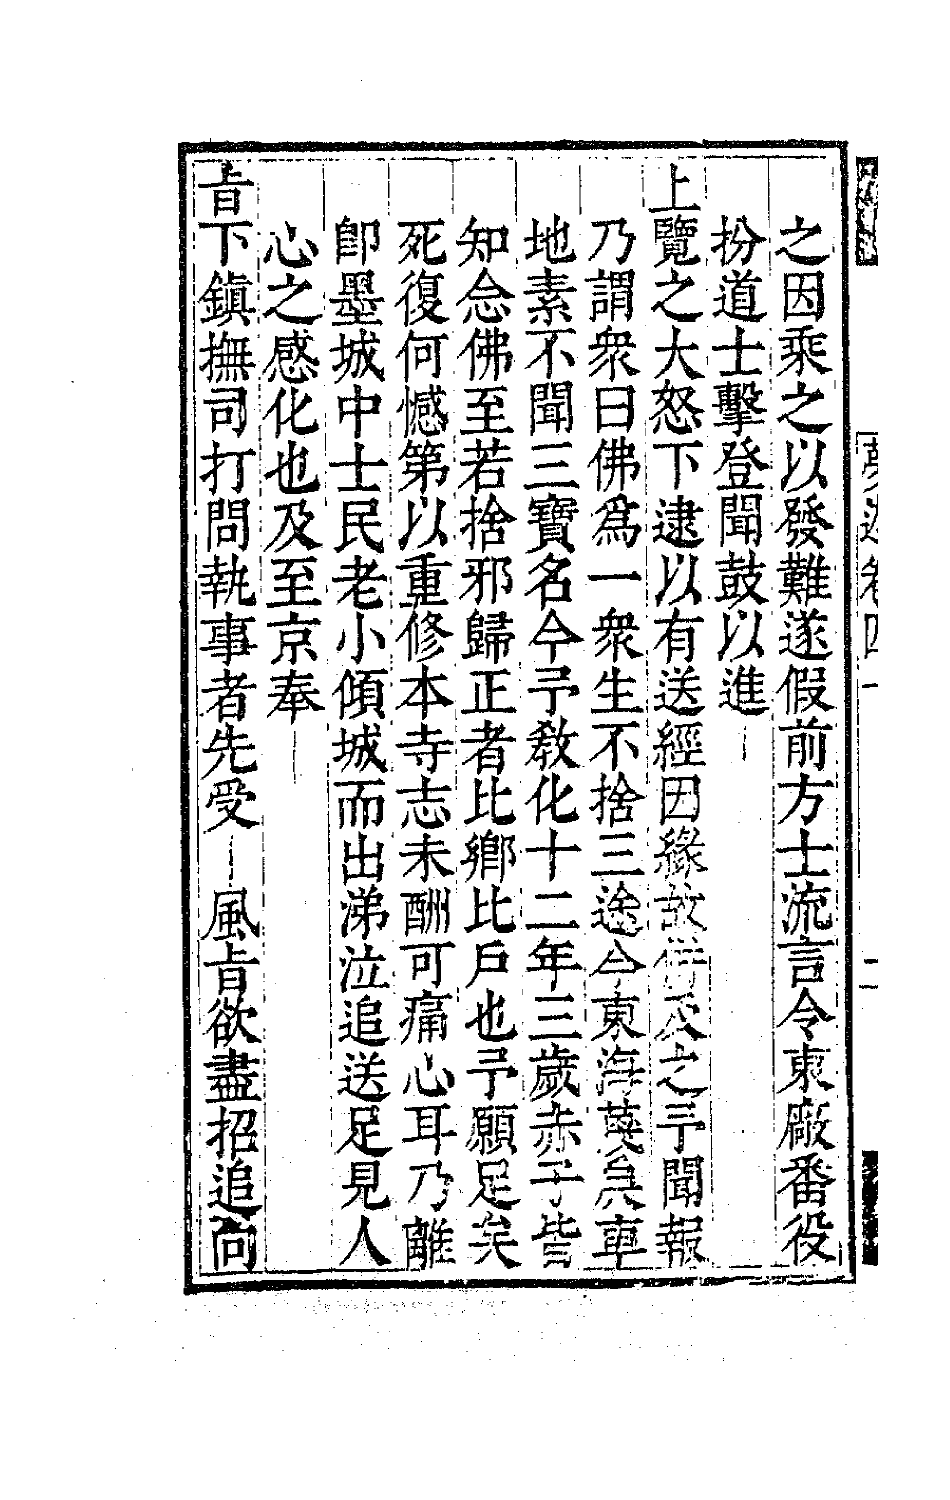 之因乘之以發難遂假前方士流言令東廠番役
扮道士擊登聞鼓以進
上覽之大怒下逮以有送經因緣故併及之予聞報
乃謂衆曰佛爲一衆生不捨三途今東海蔑戾車
地素不聞三寶名今予教化十二年三歲赤子皆
知念佛至若捨邪歸正者比鄉比戶也予願足矣
死復何憾第以重修本寺志未酬可痛心耳乃離
卽墨城中士民老小傾城而出涕泣追送足見人
心之感化也及至京奉
旨下鎮撫司打問執事者先受風旨欲盡招追向
夢遊卷四